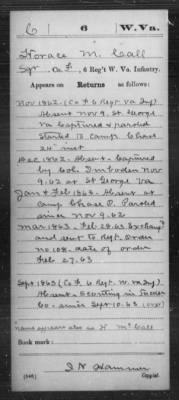 C 6 W.Va.
Horace M. Call
Sgt, Co. F, 6 Reg't W. Va. Infantry.
Appears on Returns as follows:
Nov 1862 (Co F 6 Regt Va Inf)
Absent Nov 9. St George
Va Captured & paroled
Started to Camp Chase
24" inst
Dec 1862. Absent. Captured
by Col. Imboden Nov
9.62 at St George Va
Jan & Feb 1863. Absent at
Camp Chase O. Paroled
since Nov 9.62
Mar 1863. Feb 28.63 Exchang'd
and sent to Regt. Order
No 108. date of order
Feb 27.63
Sept 1863 (Co F 6 Regt. W. Va Inf)
Absent. Scouting in
Co. since Sept 10.63
Name appears also as H McCall
Book mark:
(546) Copyist.